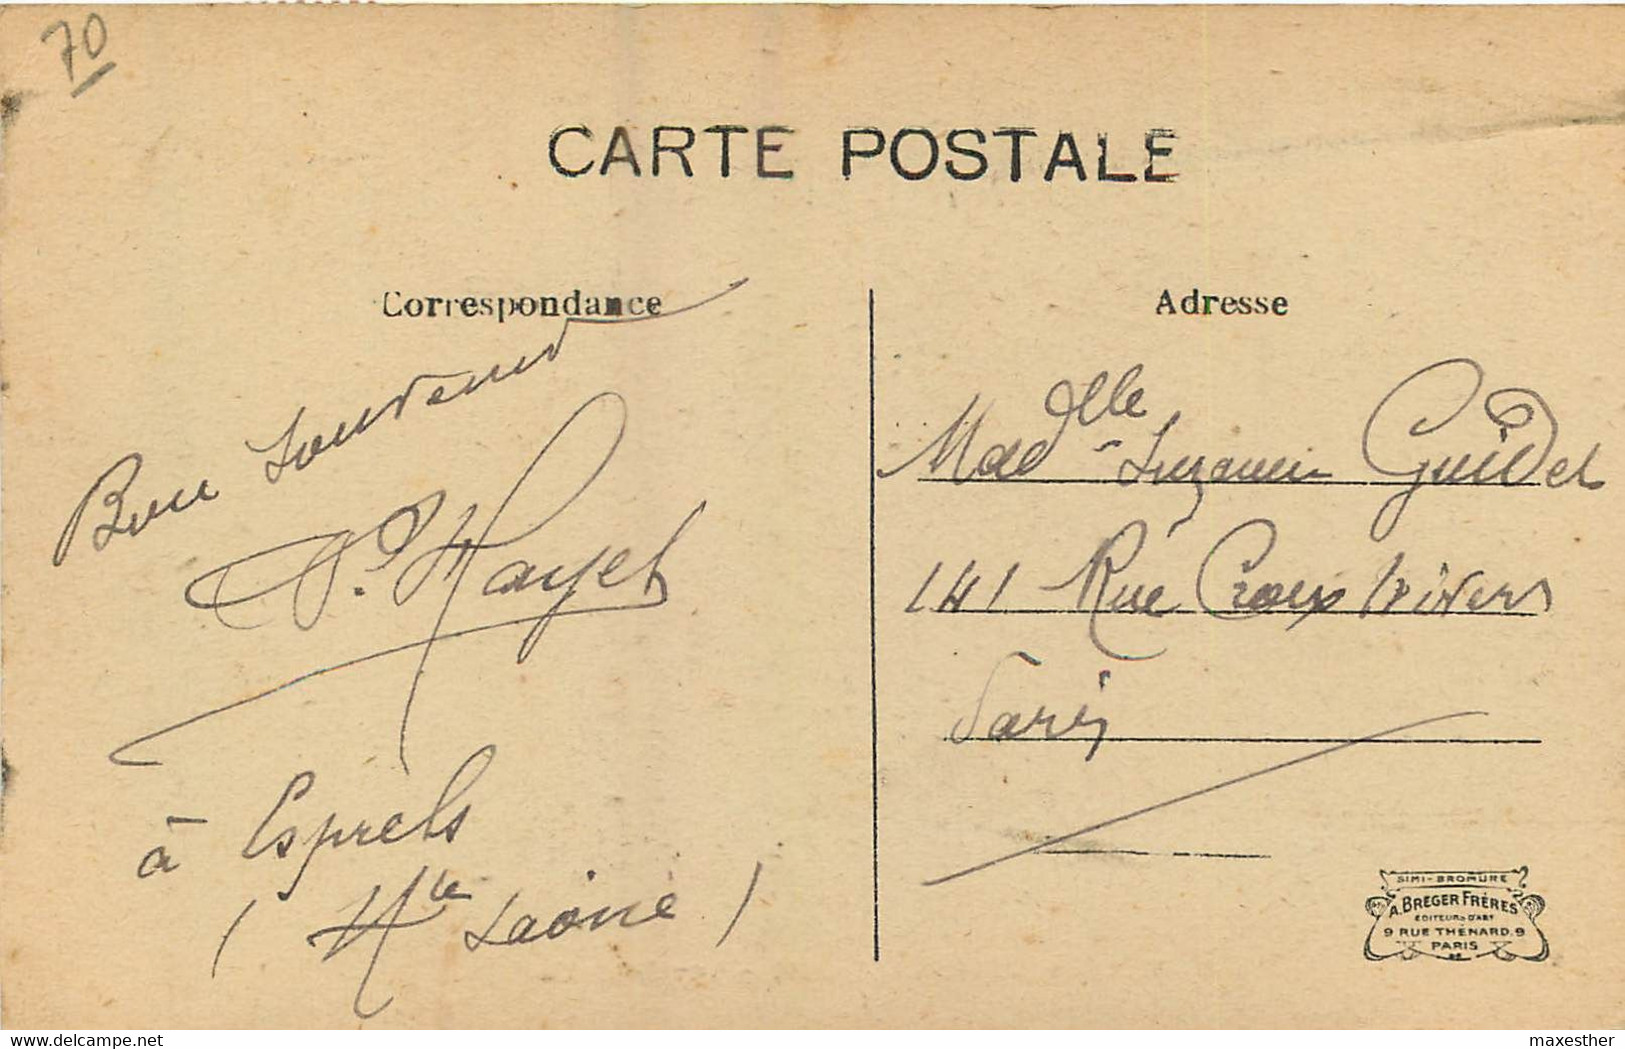 70
CARTE POSTALE
Correspondance
Bon Souvenir
P. Hayet
à Esprels
( Hte Saône )
Adresse
Madelle Suzanne Guidet
141 Rue Croix Nivers
Paris
SIMI-BROMURE
A. BREGER FRÈRES
EDITEURS D'ART
9 RUE THÉNARD.9
PARIS
www.delcampe.net
maxesther